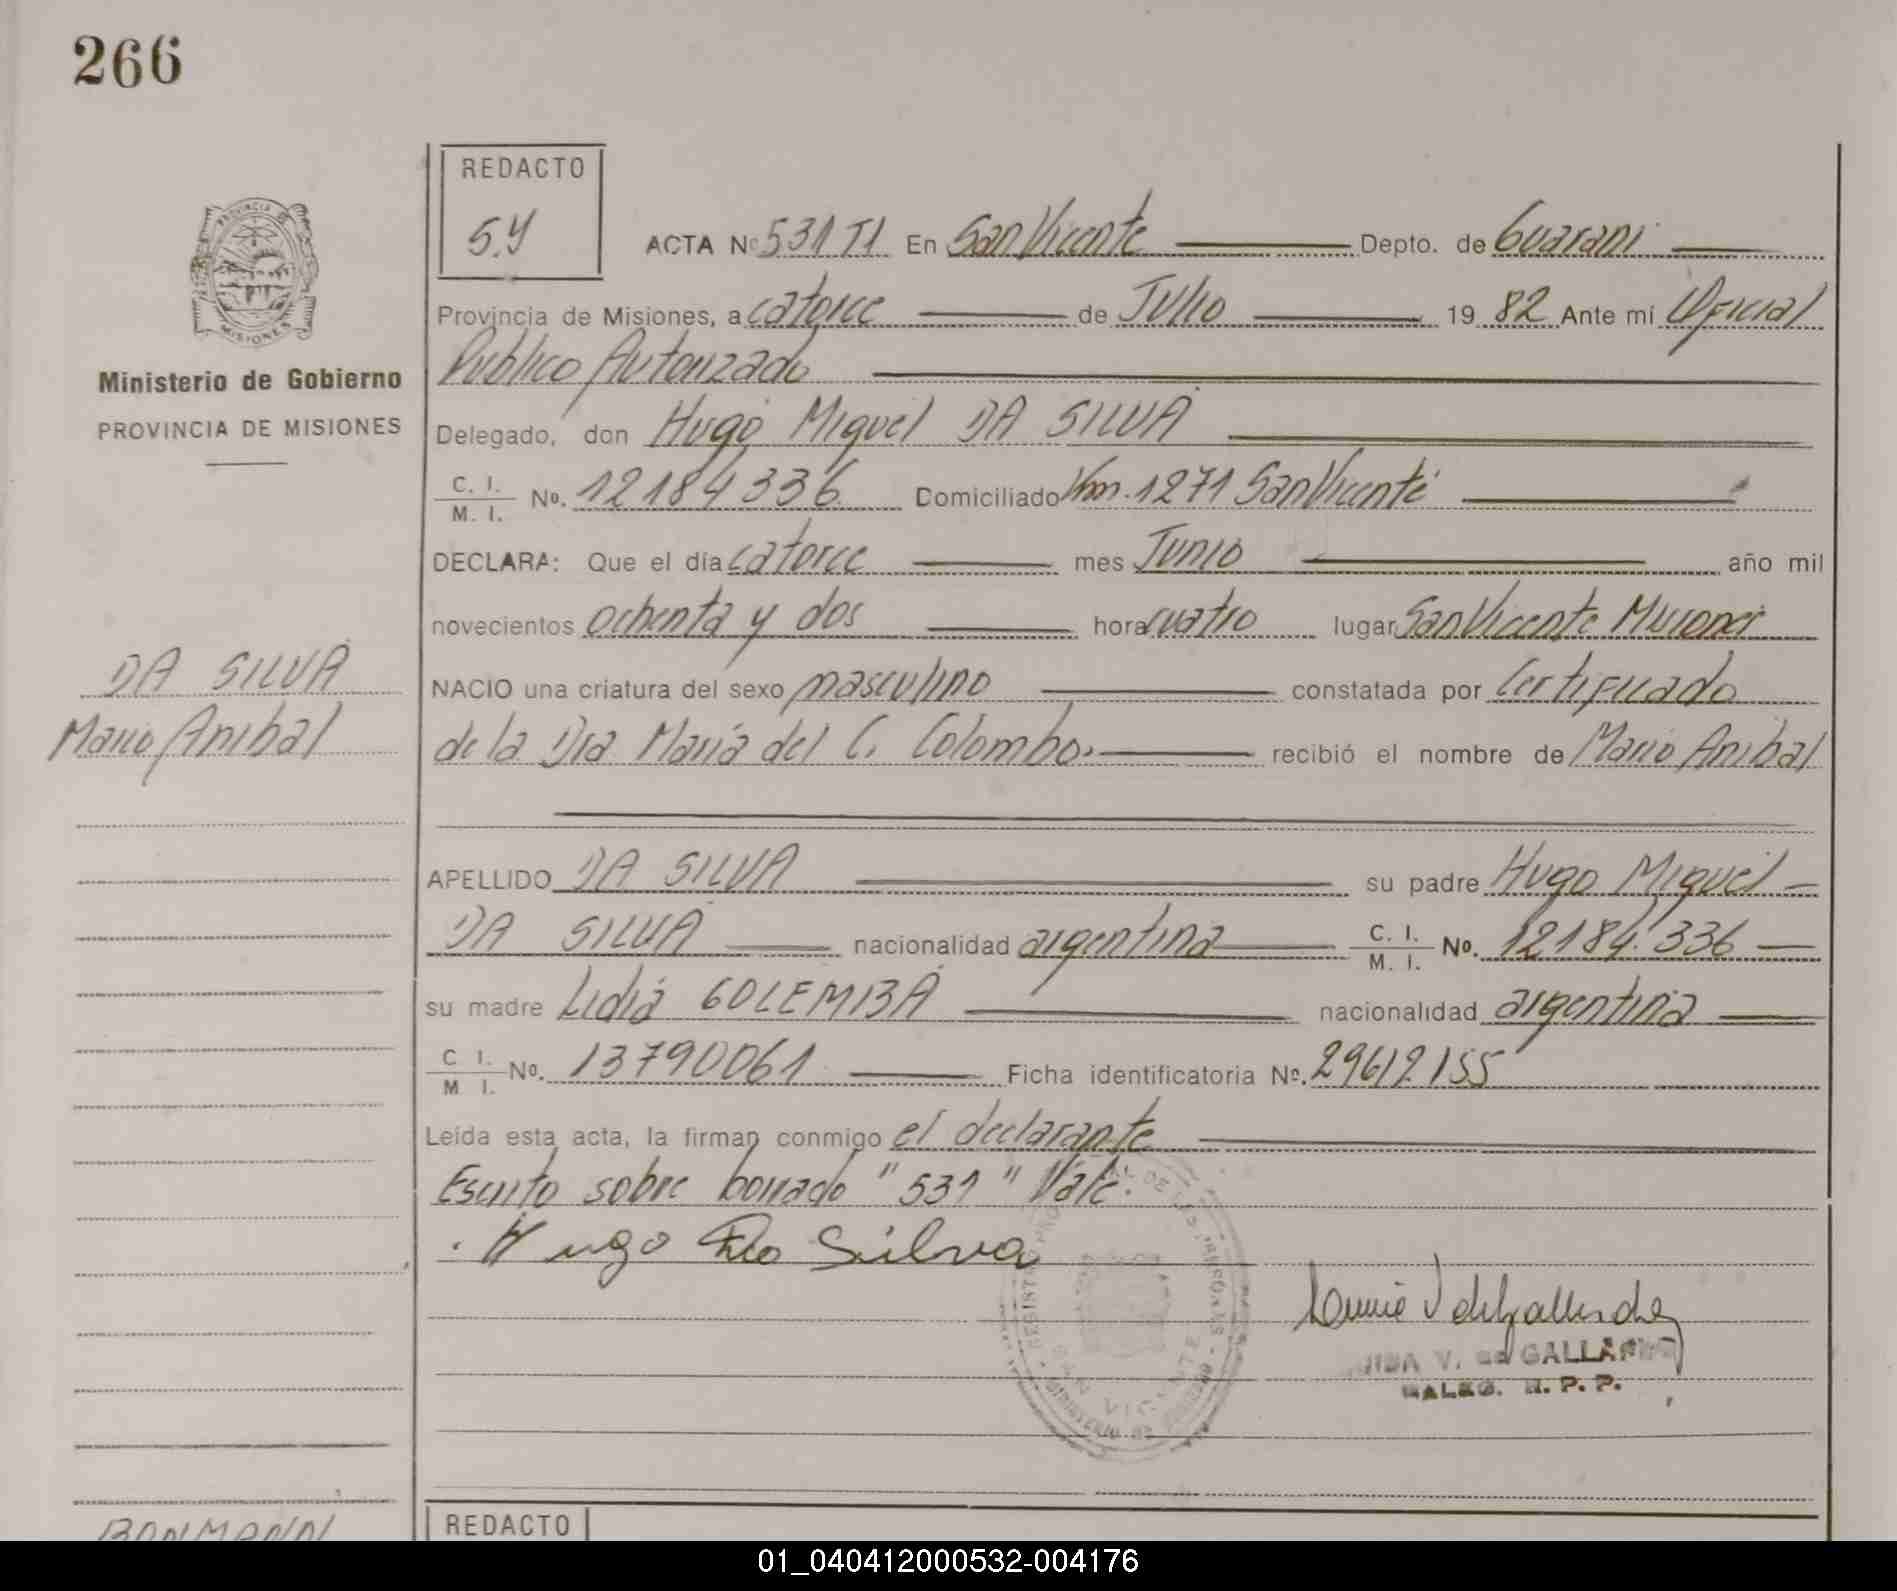 266
REDACTO
S.Y
PROVINCIA DE
MISIONES
Ministerio de Gobierno
PROVINCIA DE MISIONES
DA SILVA
Mario Anibal
ACTA Nº 531 T1 En San Vicente Depto. de Guarani
Provincia de Misiones, a catorce de Julio 19 82 Ante mí Oficial
Publico Autorizado
Delegado, don Hugo Miguel DA SILVA
C. I. / M. I. No. 12184336 Domiciliado Km. 1271 San Vicente
DECLARA: Que el día catorce mes Junio año mil
novecientos ochenta y dos hora cuatro lugar San Vicente Misiones
NACIO una criatura del sexo masculino constatada por Certificado
de la Dra Maria del C. Colombo. recibió el nombre de Mario Anibal
APELLIDO DA SILVA su padre Hugo Miguel
DA SILVA nacionalidad argentina C. I. / M. I. No. 12184.336
su madre Lidia GOLEMBA nacionalidad argentina
C. I. / M. I. No. 13790061 Ficha identificatoria No. 29612155
Leída esta acta, la firman conmigo el declarante
Escrito sobre borrado "531" Vale.
Hugo Da Silva
V. de GALLAR
R. P. P.
SAN VICENTE
REDACTO
01_040412000532-004176